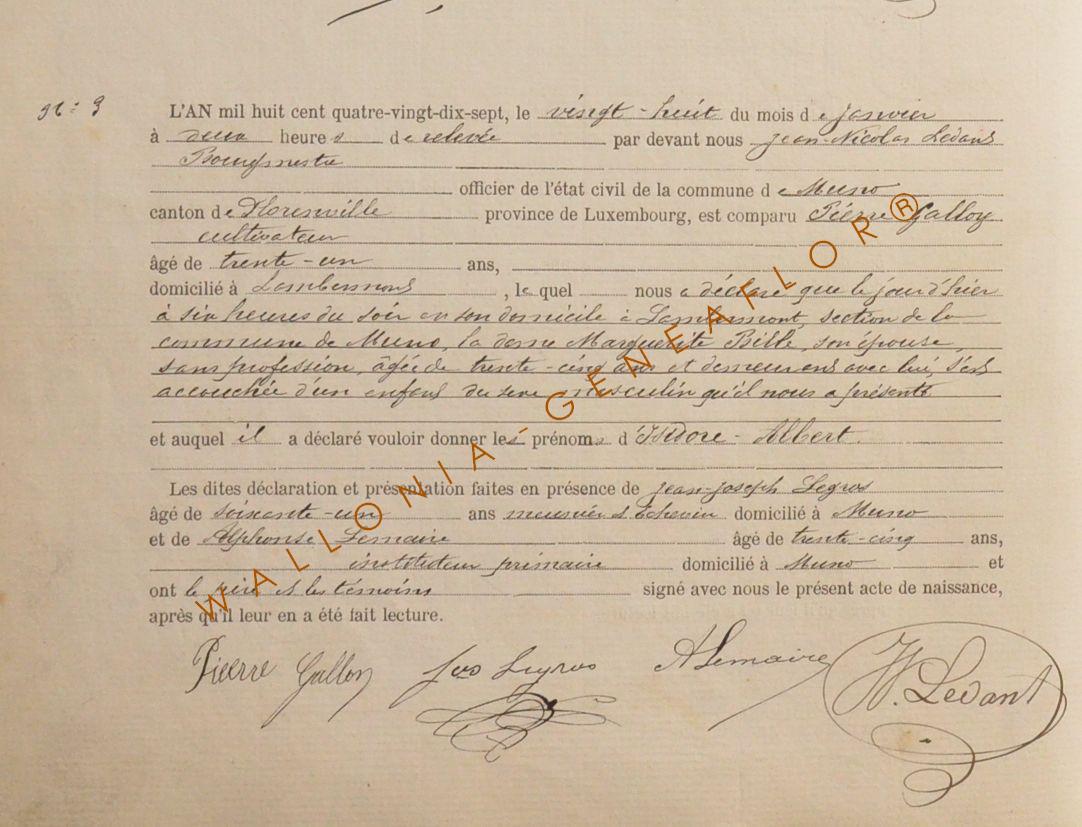 N° 3
L'AN mil huit cent quatre-vingt-dix-sept, le vingt-huit du mois de Janvier
à deux heures de relevée par devant nous Jean-Nicolas Ledant
Bourgmestre
officier de l'état civil de la commune de Muno
canton de Florenville province de Luxembourg, est comparu Pierre Galloy
cultivateur
âgé de trente-un ans,
domicilié à Lambermont, lequel nous a déclaré que le jour d'hier
à six heures du soir en son domicile à Lambermont, section de la
commune de Muno, la dame Marguerite Bille, son épouse,
sans profession, âgée de trente-cinq ans et demeurant avec lui, s'est
accouchée d'un enfant du sexe masculin qu'il nous a présenté
et auquel il a déclaré vouloir donner les prénoms d'Isidore-Albert.
Les dites déclaration et présentation faites en présence de Jean-Joseph Legros
âgé de soixante-un ans meunier et Echevin domicilié à Muno
et de Alphonse Lemaire âgé de trente-cinq ans,
instituteur primaire domicilié à Muno et
ont le père et les témoins signé avec nous le présent acte de naissance,
après qu'il leur en a été fait lecture.
Pierre Galloy Jos Legros A Lemaire N. Ledant
WALLONIA-GENEAFLOR®